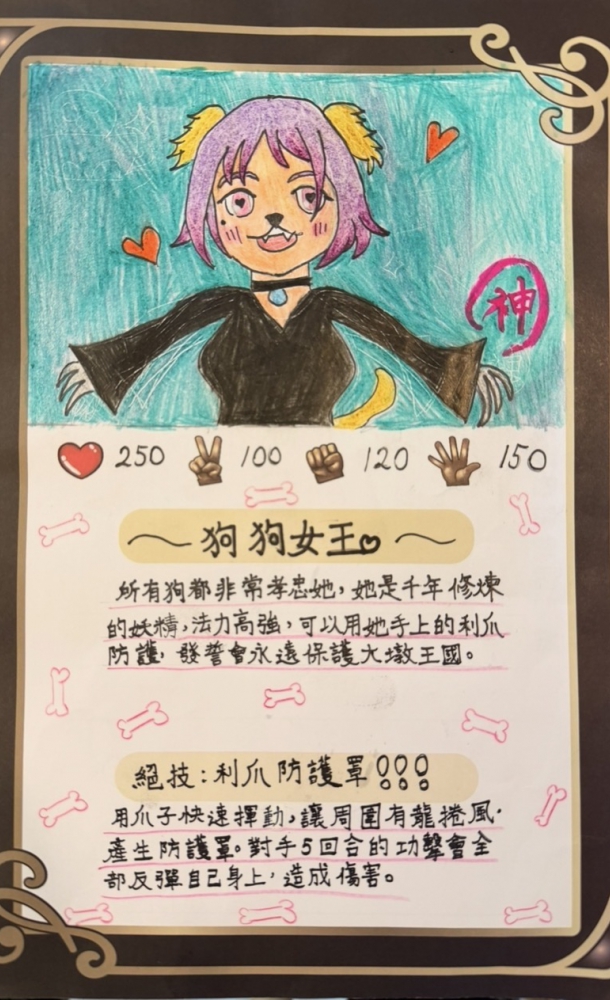 神
250 100 120 150
~狗狗女王~
所有狗都非常孝忠她，她是千年修煉
的妖精，法力高強，可以用她手上的利爪
防護，發誓會永遠保護大墩王國。
絕技：利爪防護罩!!!
用爪子快速揮動，讓周圍有龍捲風，
產生防護罩。對手5回合的功擊會全
部反彈自己身上，造成傷害。